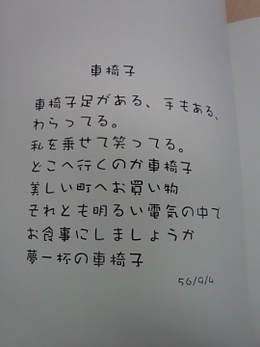 車椅子
車椅子足がある、手もある、
わらってる。
私を乗せて笑ってる。
どこへ行くのか車椅子
美しい町へお買い物
それとも明るい電気の中で
お食事にしましょうか
夢一杯の車椅子
56/9/4